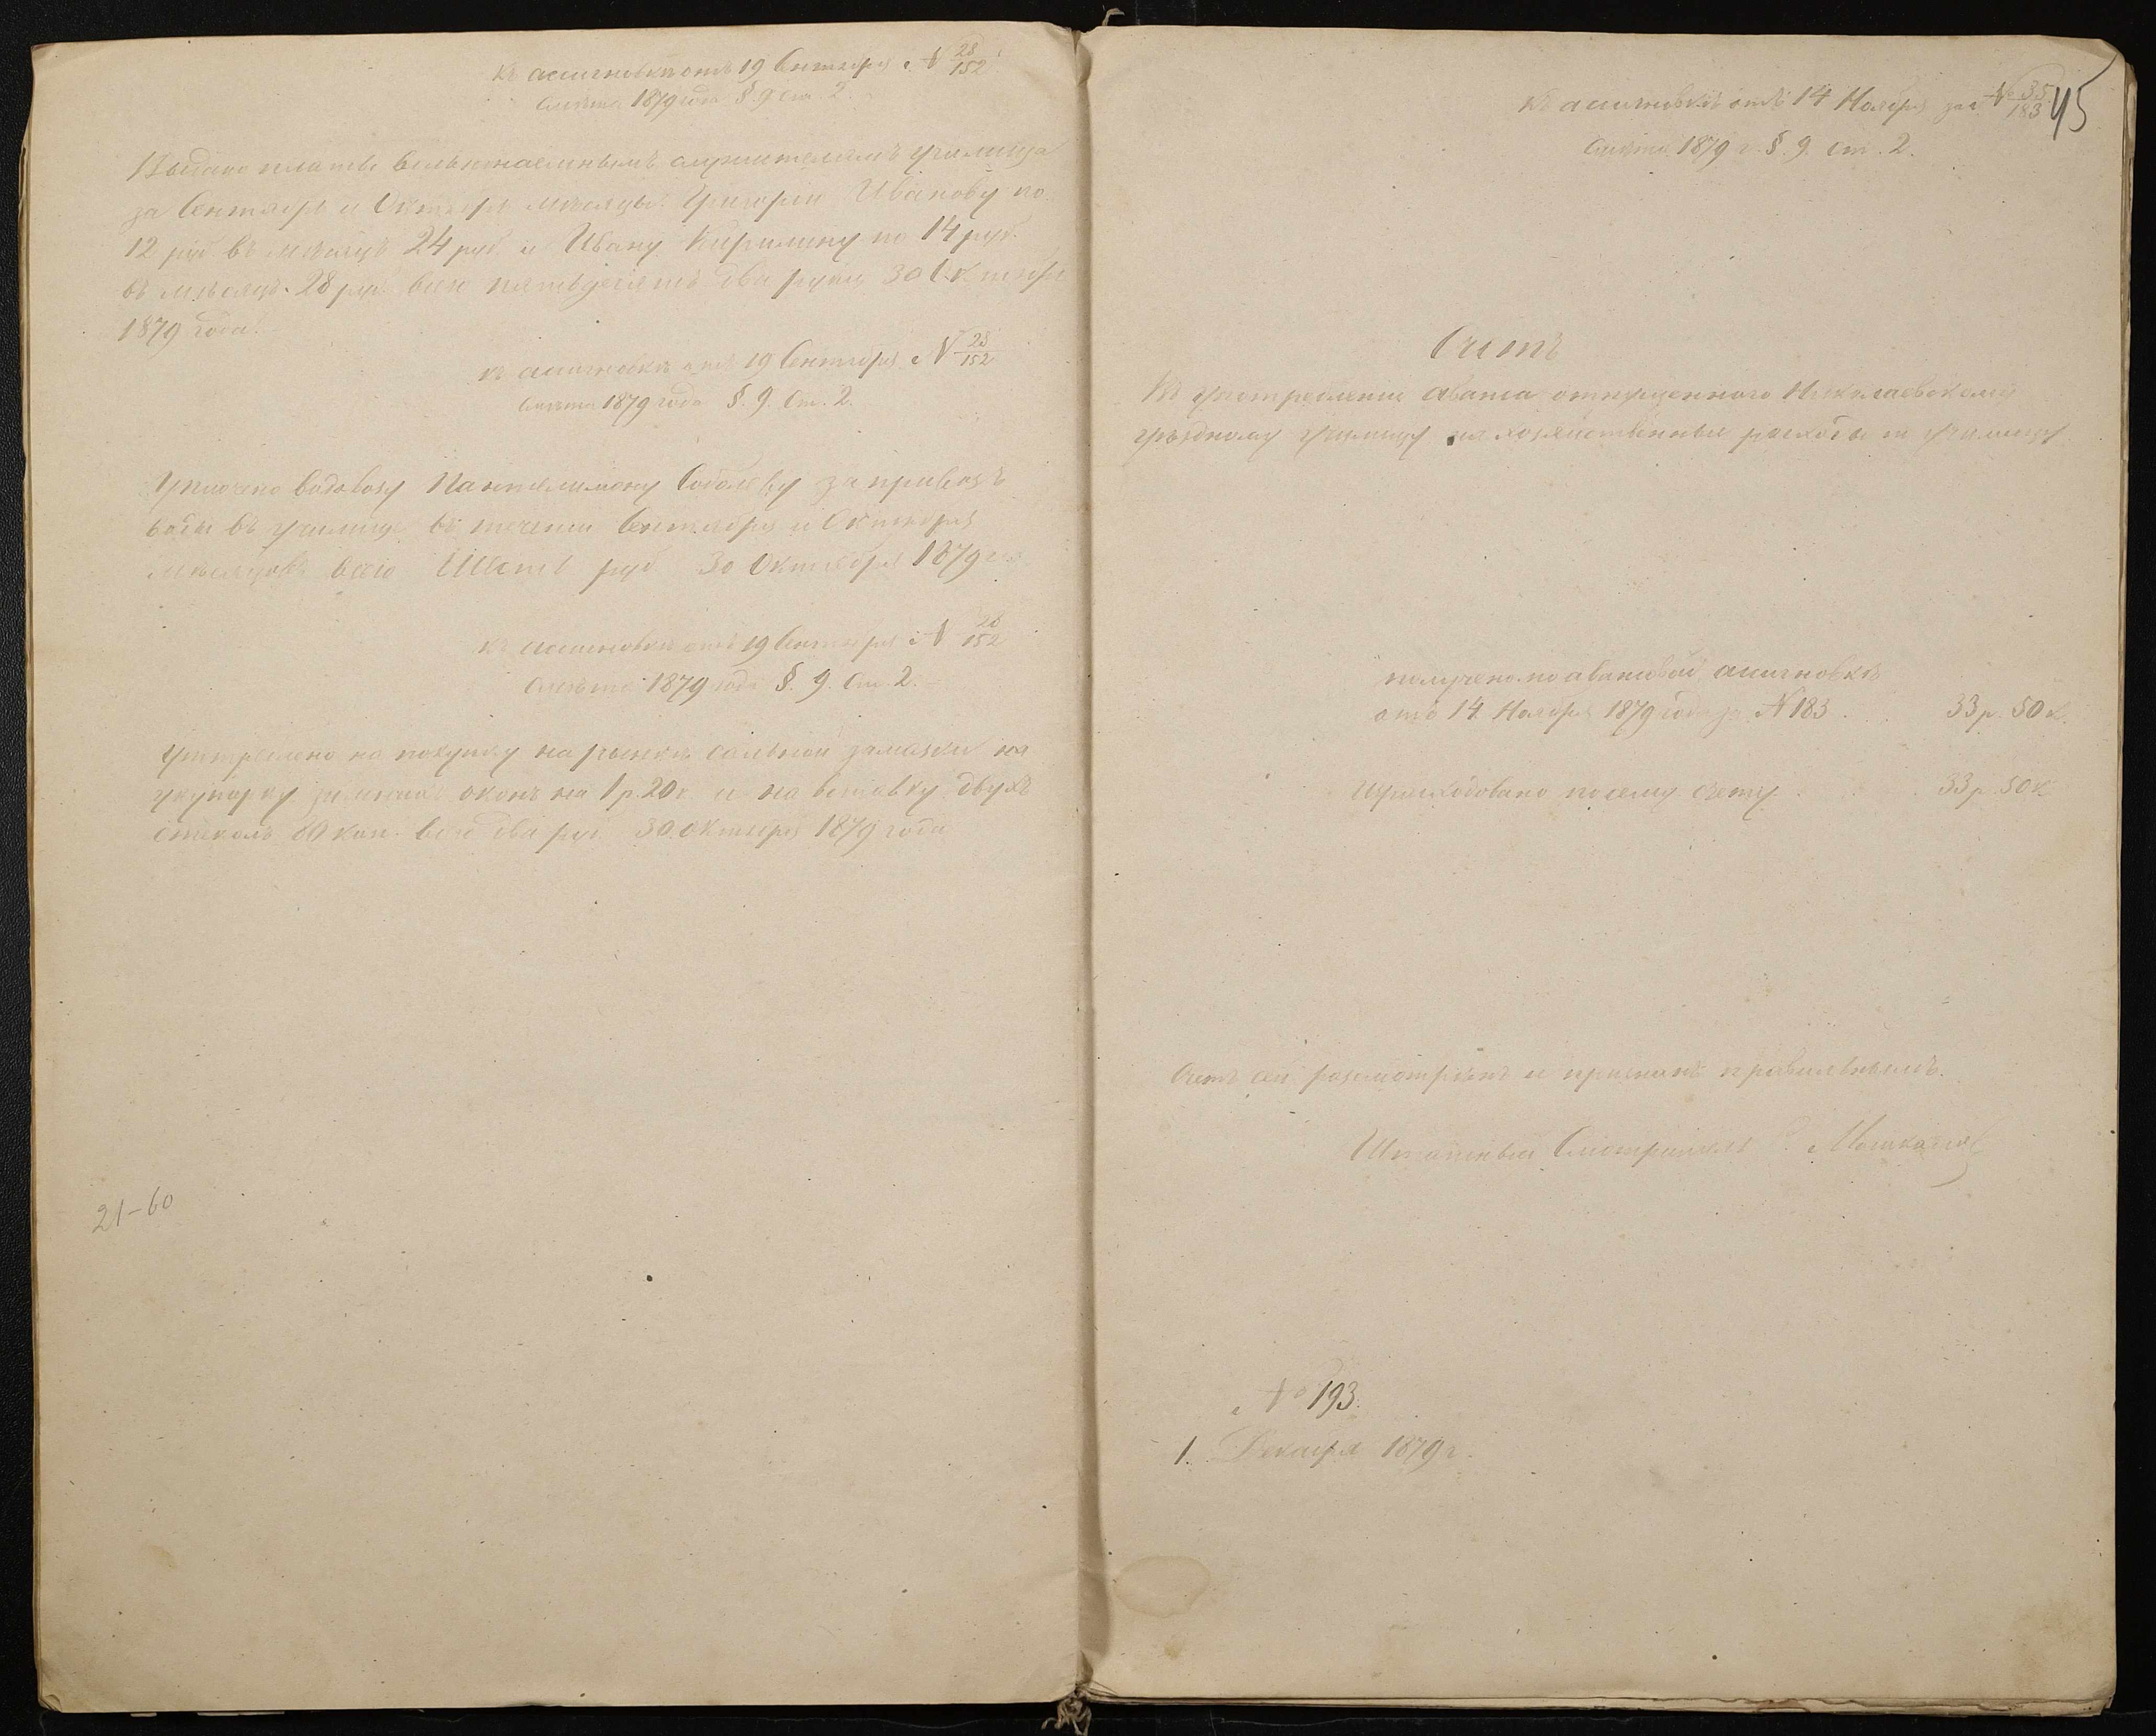 Къ ассигновкѣ отъ 19 Сентября № 28/152
Смѣта 1879 года §. 9 Ст. 2.
Выдано платы вольнонаемнымъ служителямъ училища
за Сентябрь и Октябрь мѣсяцы: Григорію Иванову по
12 руб. въ мѣсяцъ 24 руб. и Ивану Кирилину по 14 руб.
въ мѣсяцъ 28 руб. всего пятьдесятъ два рубля 30 Октября
1879 года.
Къ ассигновкѣ отъ 19 Сентября № 28/152
Смѣта 1879 года §. 9. Ст. 2.
Уплочено водовозу Пантелимону Соболеву за привозъ
воды въ училище въ теченіи Сентября и Октября
мѣсяцовъ всего Шесть руб. 30 Октября 1879 г.
Къ ассигновкѣ отъ 19 Сентября № 28/152
Смѣта 1879 года §. 9. Ст. 2.
Употреблено на покупку на рынкѣ замазки на
укупорку зимнихъ оконъ на 1 р. 20 к. и на вставку двухъ
стеколъ 80 коп. всего два руб. 30 Октября 1879 года
21-60
45
Къ ассигновкѣ отъ 14 Ноября за № 35/183
Смѣта 1879 г. §. 9. Ст. 2.
Счетъ
Въ употребленіи аванса отпущеннаго Николаевскому
уѣздному училищу на хозяйственные расходы по училищу
получено по авансовой ассигновкѣ
отъ 14 Ноября 1879 года за № 183 . . . 33 р. 50 к.
Израсходовано по сему счету . . . . 33 р. 50 к.
Счетъ сей разсмотрѣнъ и признанъ правильнымъ.
Штатный Смотритель
№ 193.
1. Декабря 1879 г.